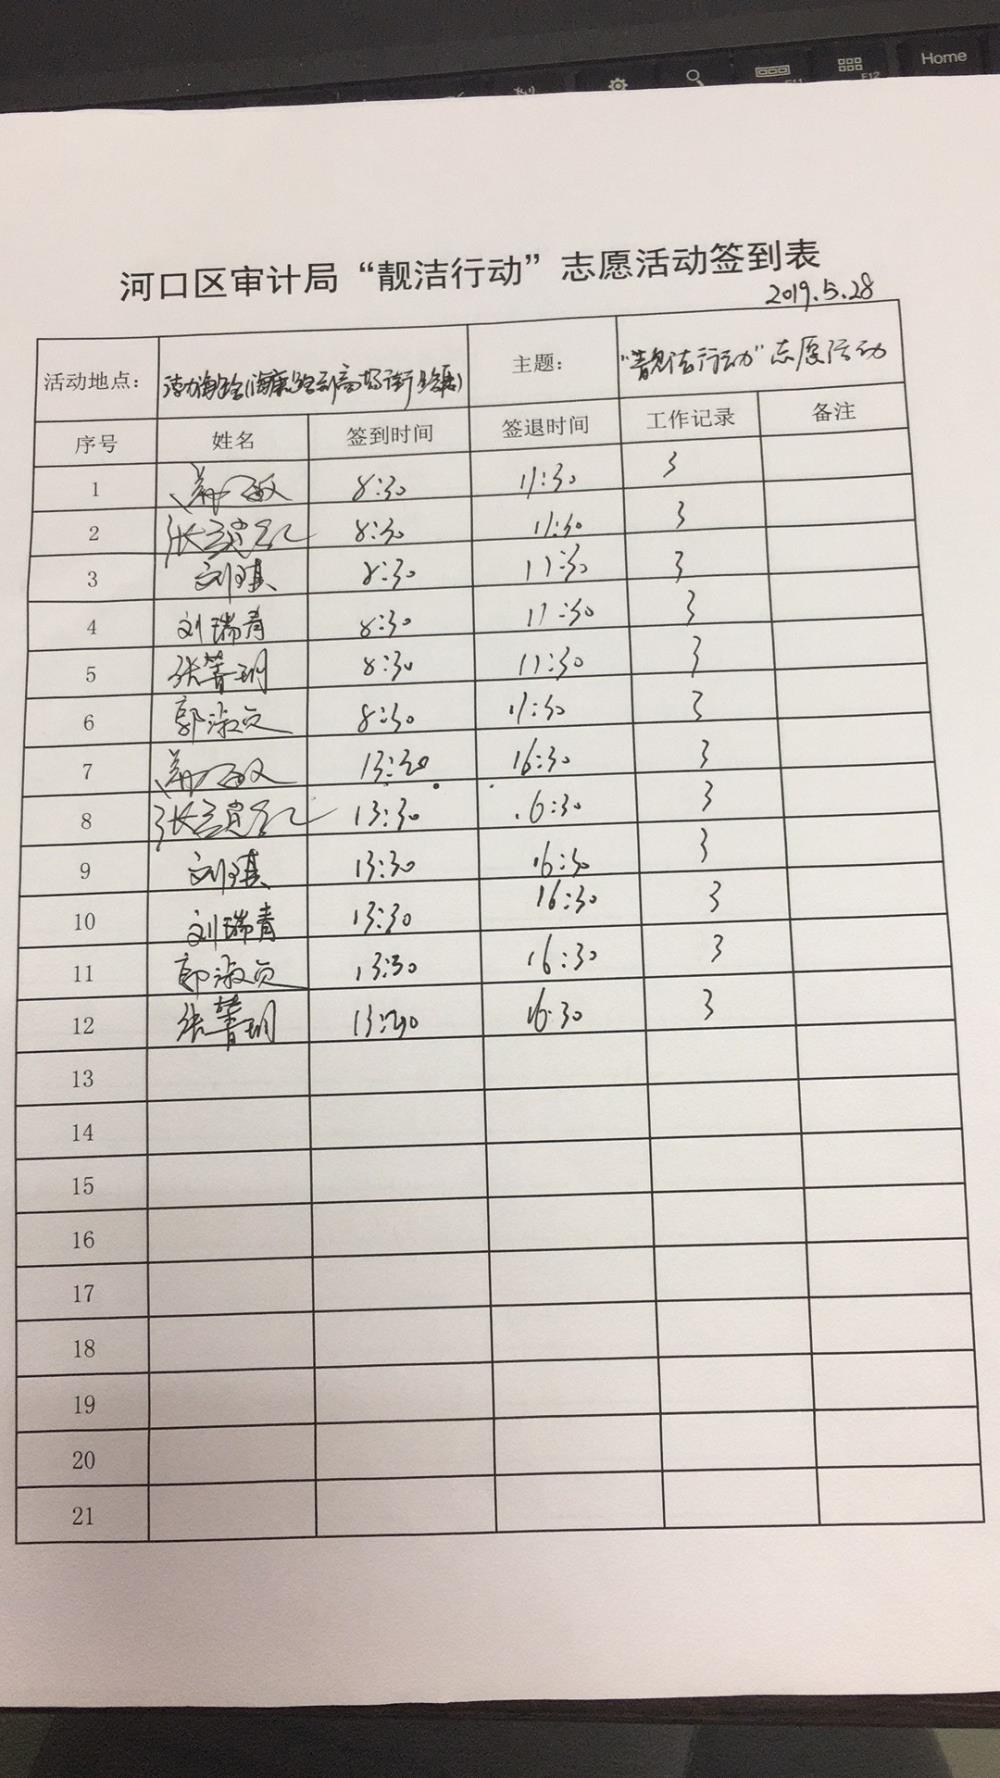 Home
F11
F12
河口区审计局“靓洁行动”志愿活动签到表
2019.5.28
活动地点： 渤海路(海康路到高场街路段) 主题： “靓洁行动”志愿活动
序号 姓名 签到时间 签退时间 工作记录 备注
1 8:30 11:30 3
2 张 8:30 11:30 3
3 刘琪 8:30 11:30 3
4 刘瑞青 8:30 11:30 3
5 张菁玥 8:30 11:30 3
6 郭淑贞 8:30 11:30 3
7 13:30 16:30 3
8 张 13:30 16:30 3
9 刘琪 13:30 16:30 3
10 刘瑞青 13:30 16:30 3
11 郭淑贞 13:30 16:30 3
12 张菁玥 13:30 16:30 3
13
14
15
16
17
18
19
20
21